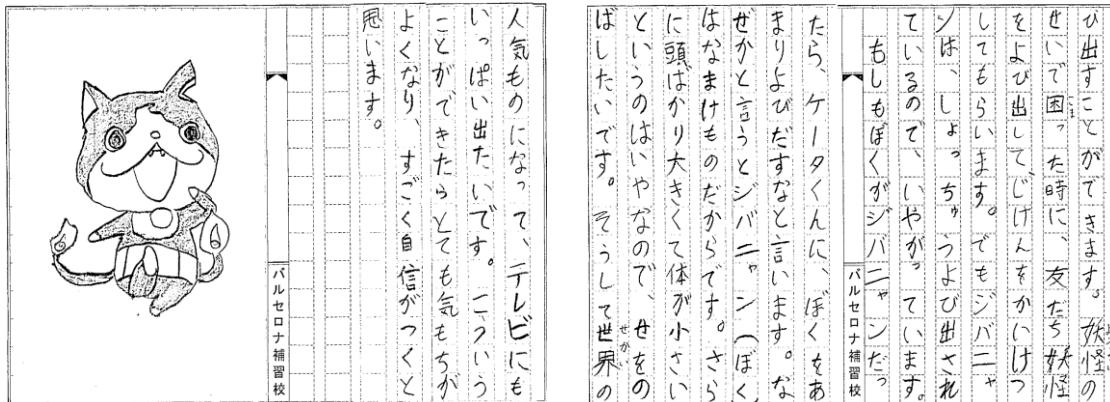 び出すことができます。妖怪の
せいで困った時に、友だち妖怪
をよび出して、じけんをかいけつ
してもらいます。でもジバニャ
ンは、しょっちゅうよび出され
ているので、いやがっています。
もしもぼくがジバニャンだっ
バルセロナ補習校
たら、ケータくんに、ぼくをあ
まりよびだすなと言います。な
ぜかと言うとジバニャン(ぼく)
はなまけものだからです。さら
に頭ばかり大きくて体が小さい
というのはいやなので、せをの
ばしたいです。そうして世界の
人気ものになって、テレビにも
いっぱい出たいです。こういう
ことができたらとても気もちが
よくなり、すごく自信がつくと
思います。
バルセロナ補習校